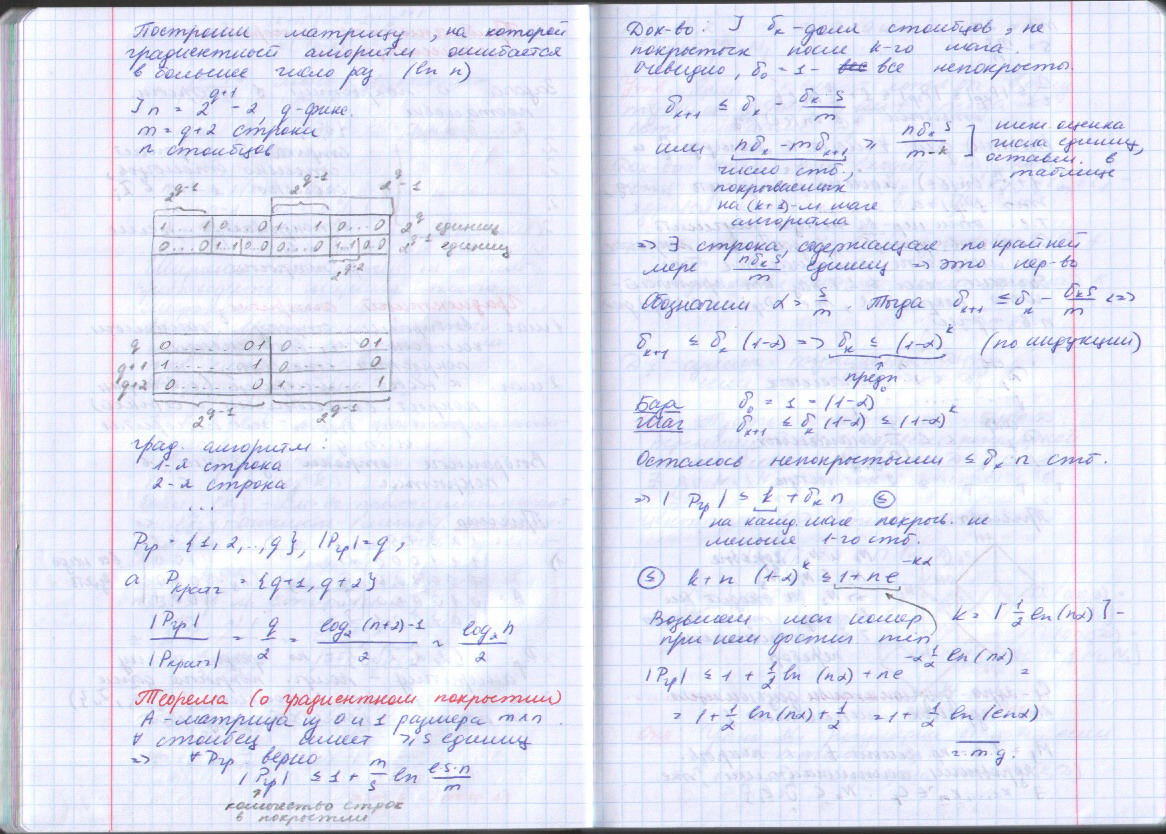 Построим матрицу, на которой
градиентный алгоритм ошибается
в большее число раз (ln n)
] n = 2^{q+1} - 2, q-фикс.
m = q+2 строки
n столбцов
2^{q-1} 2^{q-1} 2^q-1
1 1 0 0 1 1 0...0 2^q единиц
0...0 1..1 0..0 0...0 1..1 0..0 2^{q-1} единиц
2^{q-2}
q 0......01 0......01
q+1 1......1 0
q+2 0......0 1......1
2^{q-1} 2^{q-1}
град. алгоритм:
1-я строка
2-я строка
...
P_гр = {1,2,..,q}, |P_гр| = q,
а P_кратч = {q+1, q+2}
|P_гр| / |P_кратч| = q/2 = (log₂(n+2)-1)/2 ≈ log₂n/2
Теорема (о градиентном покрытии)
A - матрица из 0 и 1 размера m×n
∀ столбец имеет ≥ s единиц
=> ∀ P_гр верно
|P_гр| ≤ 1 + m/s ln (e·s·n)/m
количество строк
в покрытии
Док-во: ] δ_k - доля столбцов, не
покрытых после k-го шага.
Очевидно, δ_0 = 1 - все непокрыты
δ_{k+1} ≤ δ_k - δ_k s/m
или nδ_k - mδ_{k+1} ≥ nδ_k s/(m-k) ] ниж оценка
числа единиц,
оставш. в
таблице
число стб.,
покрываемых
на (k+1)-м шаге
алгоритма
=> ∃ строка, содержащая по крайней
мере nδ_k s/m единиц => это нер-во
Обозначим α = s/m. Тогда δ_{k+1} ≤ δ_k - δ_k s/m <=>
δ_{k+1} ≤ δ_k (1-α) => δ_k ≤ (1-α)^k (по индукции)
предп
База δ_0 = 1 = (1-α)
Шаг δ_{k+1} ≤ δ_k (1-α) ≤ (1-α)^k
Осталось непокрытыми ≤ δ_k n стб.
=> |P_гр| ≤ k + δ_k n ≤
на кажд. шаге покрыв. не
меньше 1-го стб.
≤ k + n (1-α)^k ≤ 1 + ne^{-kα}
Возьмем шаг номер k = ⌈1/α ln(nα)⌉ -
при нем достиг. min
|P_гр| ≤ 1 + 1/α ln(nα) + ne^{-α 1/α ln(nα)} =
= 1 + 1/α ln(nα) + 1/α = 1 + 1/α ln(enα)
ч.т.д.